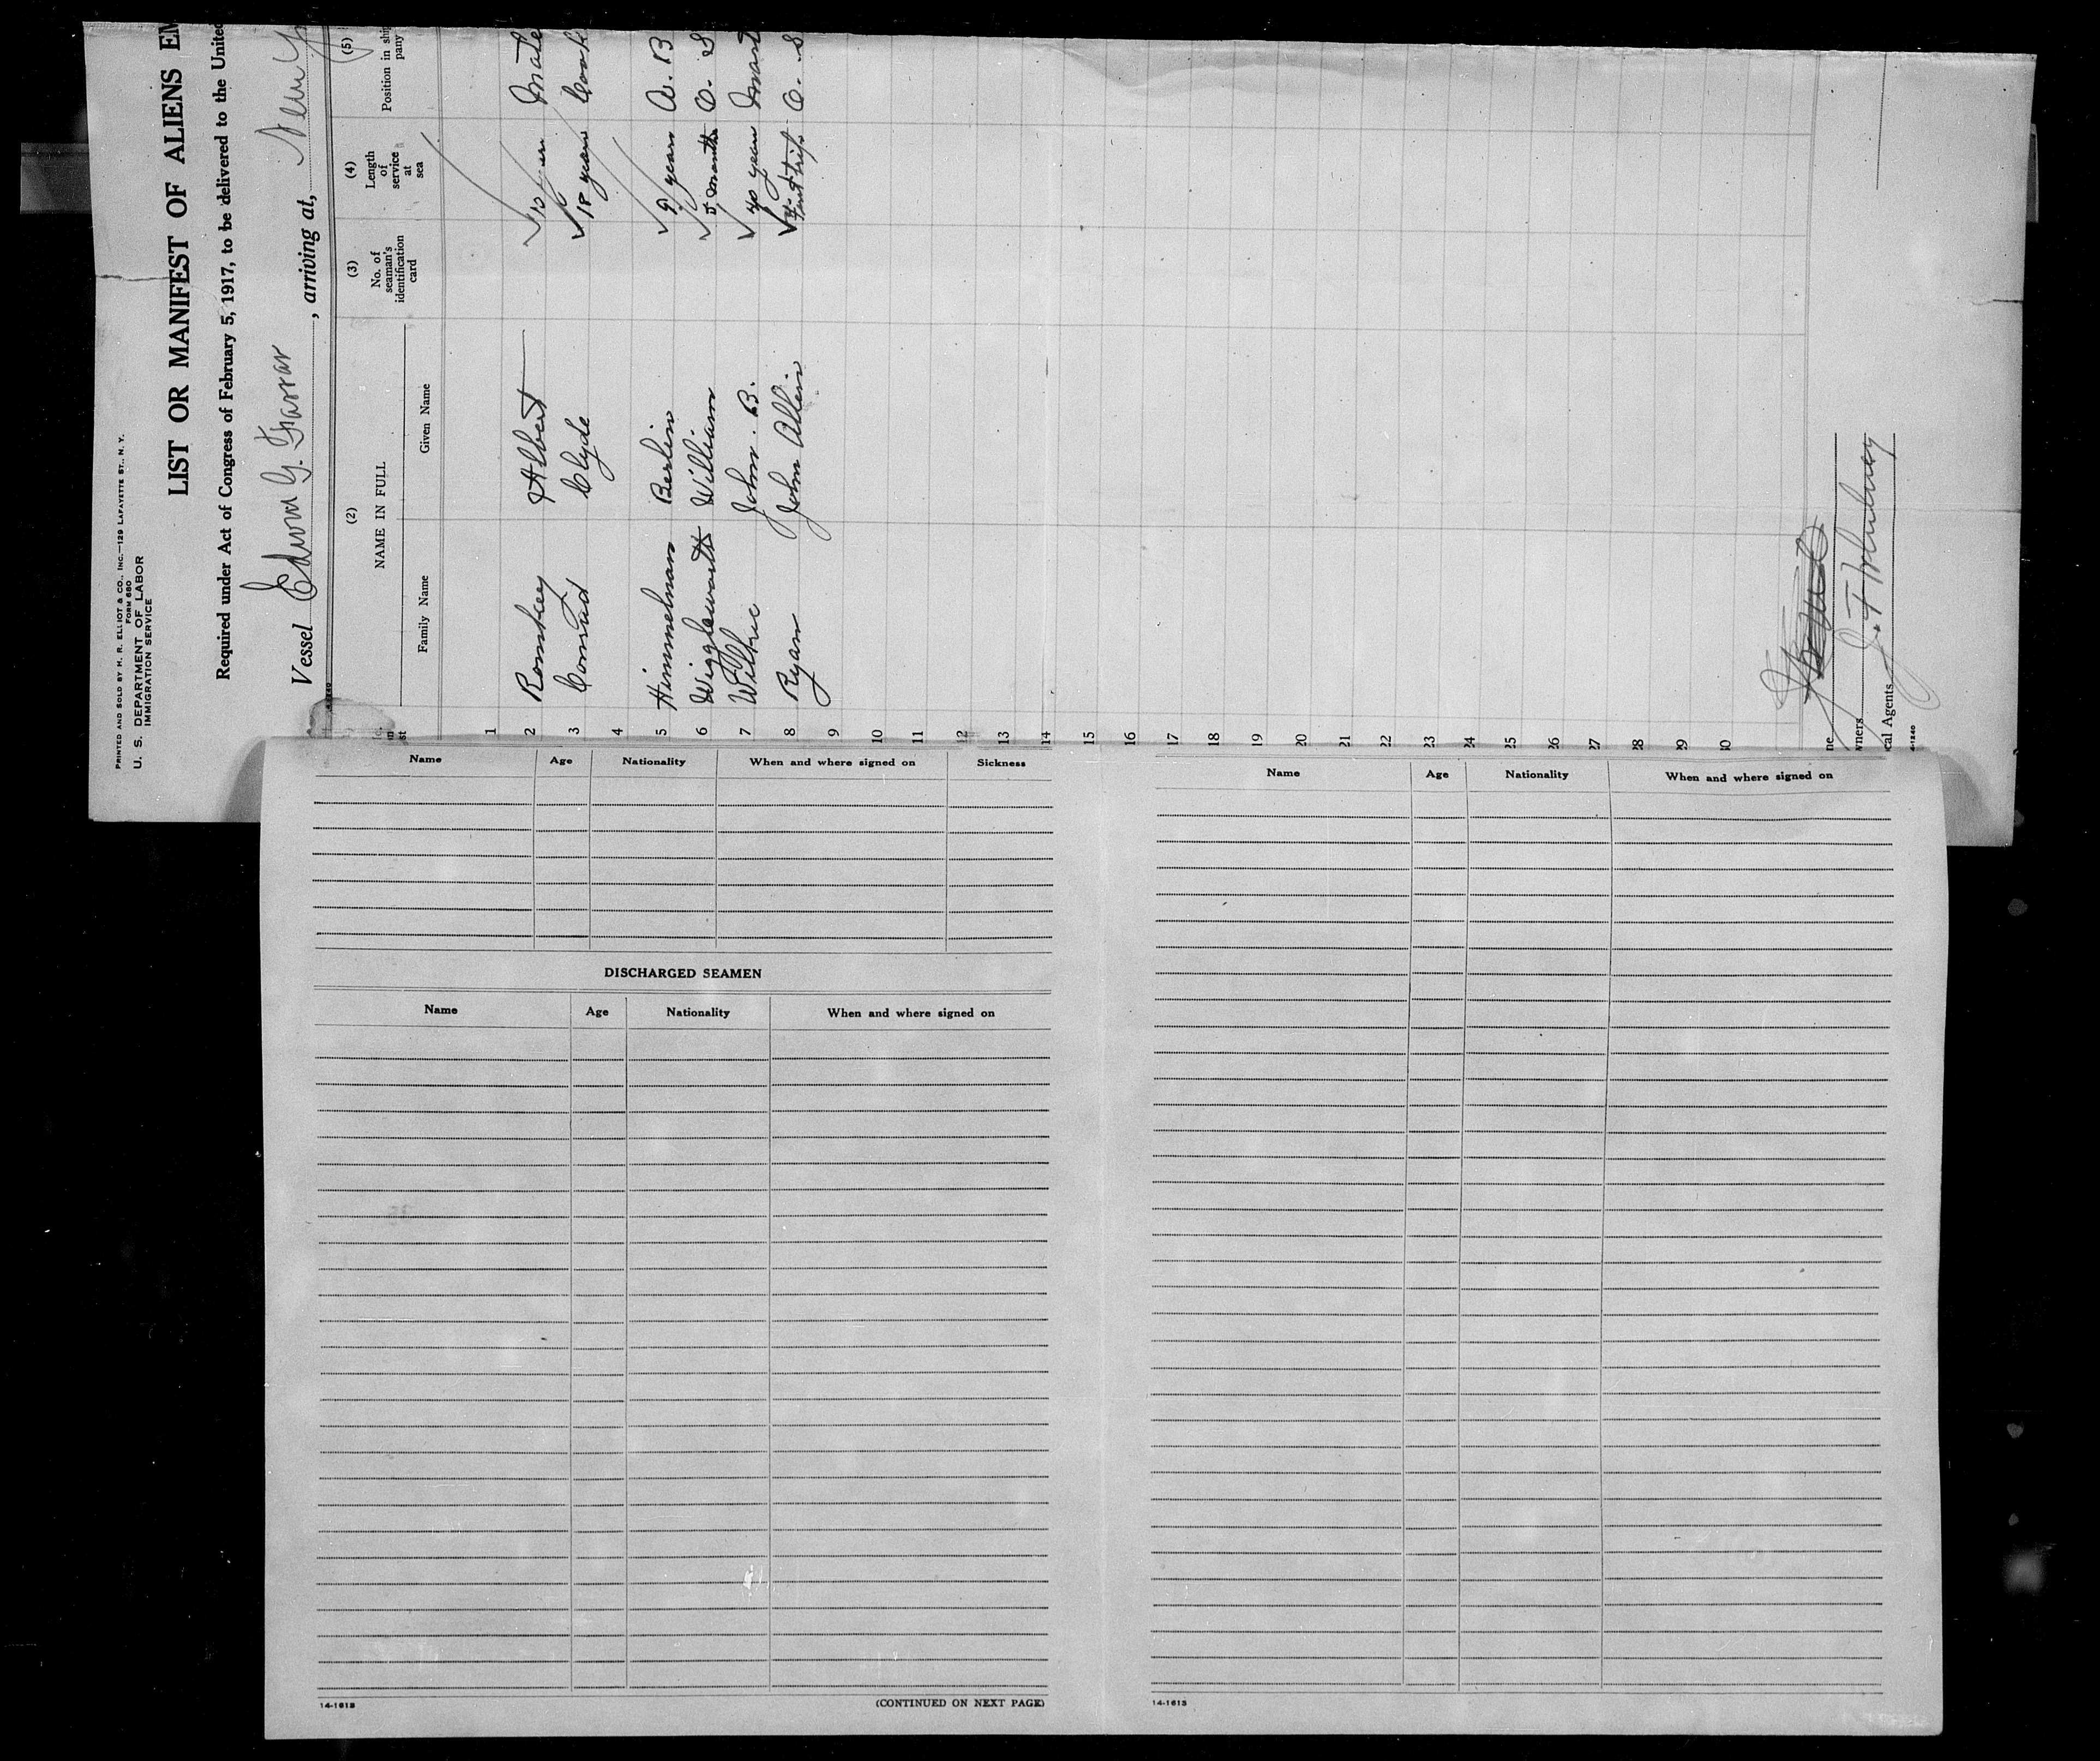 PRINTED AND SOLD BY H. R. ELLIOT & CO., INC.—129 LAFAYETTE ST., N. Y.
FORM 680
U. S. DEPARTMENT OF LABOR
IMMIGRATION SERVICE
LIST OR MANIFEST OF ALIENS EM
Required under Act of Congress of February 5, 1917, to be delivered to the United
Vessel Edwin G. Farrar, arriving at, New Y
(2) (3) (4) (5)
NAME IN FULL No. of seaman's identification card Length of service at sea Position in ship pany
Family Name Given Name
1
2 Romkey Albert 10 Mate
3 Conrad Clyde 18 years Cook
4
5 Himmelman Berlin 9 years A. B
6 Wiggleworth William 5 months O. S
7 Wilkie John. B. 40 years
8 Ryan John Allin O. S
9
10
11
12
13
14
15
16
17
18
19
20
21
22
23
24
25
26
27
28
29
30
ne
wners
cal Agents
Name Age Nationality When and where signed on Sickness
DISCHARGED SEAMEN
Name Age Nationality When and where signed on
14-1613 (CONTINUED ON NEXT PAGE)
Name Age Nationality When and where signed on
14-1613